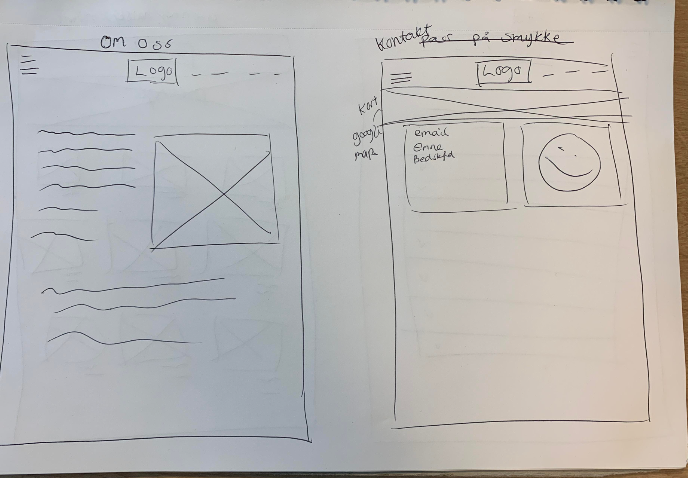 OM OSS
Logo
Kontakt
pass på smykke
Logo
Kart
google
maps
email
Emne
Beskjed